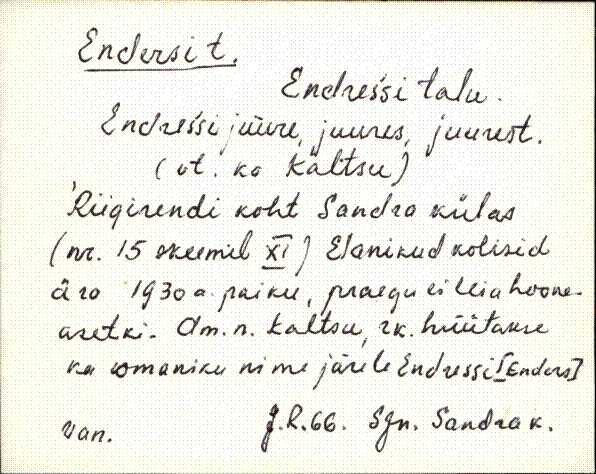 Endersi t.
Endressi talu.
Endressi juure, juures, juurest.
(vt. ka Kaltsu)
Riigirendi koht Sandra külas
(nr. 15 skeemil XI) Elanikud kolisid
ära 1930 a. paiku, praegu ei leia hoone-
asetki. Am. n. Kaltsu, rk. hüütakse
ka omaniku nime järele Endressi [Enders]
van. J.R.66. Sjn. Sandra k.